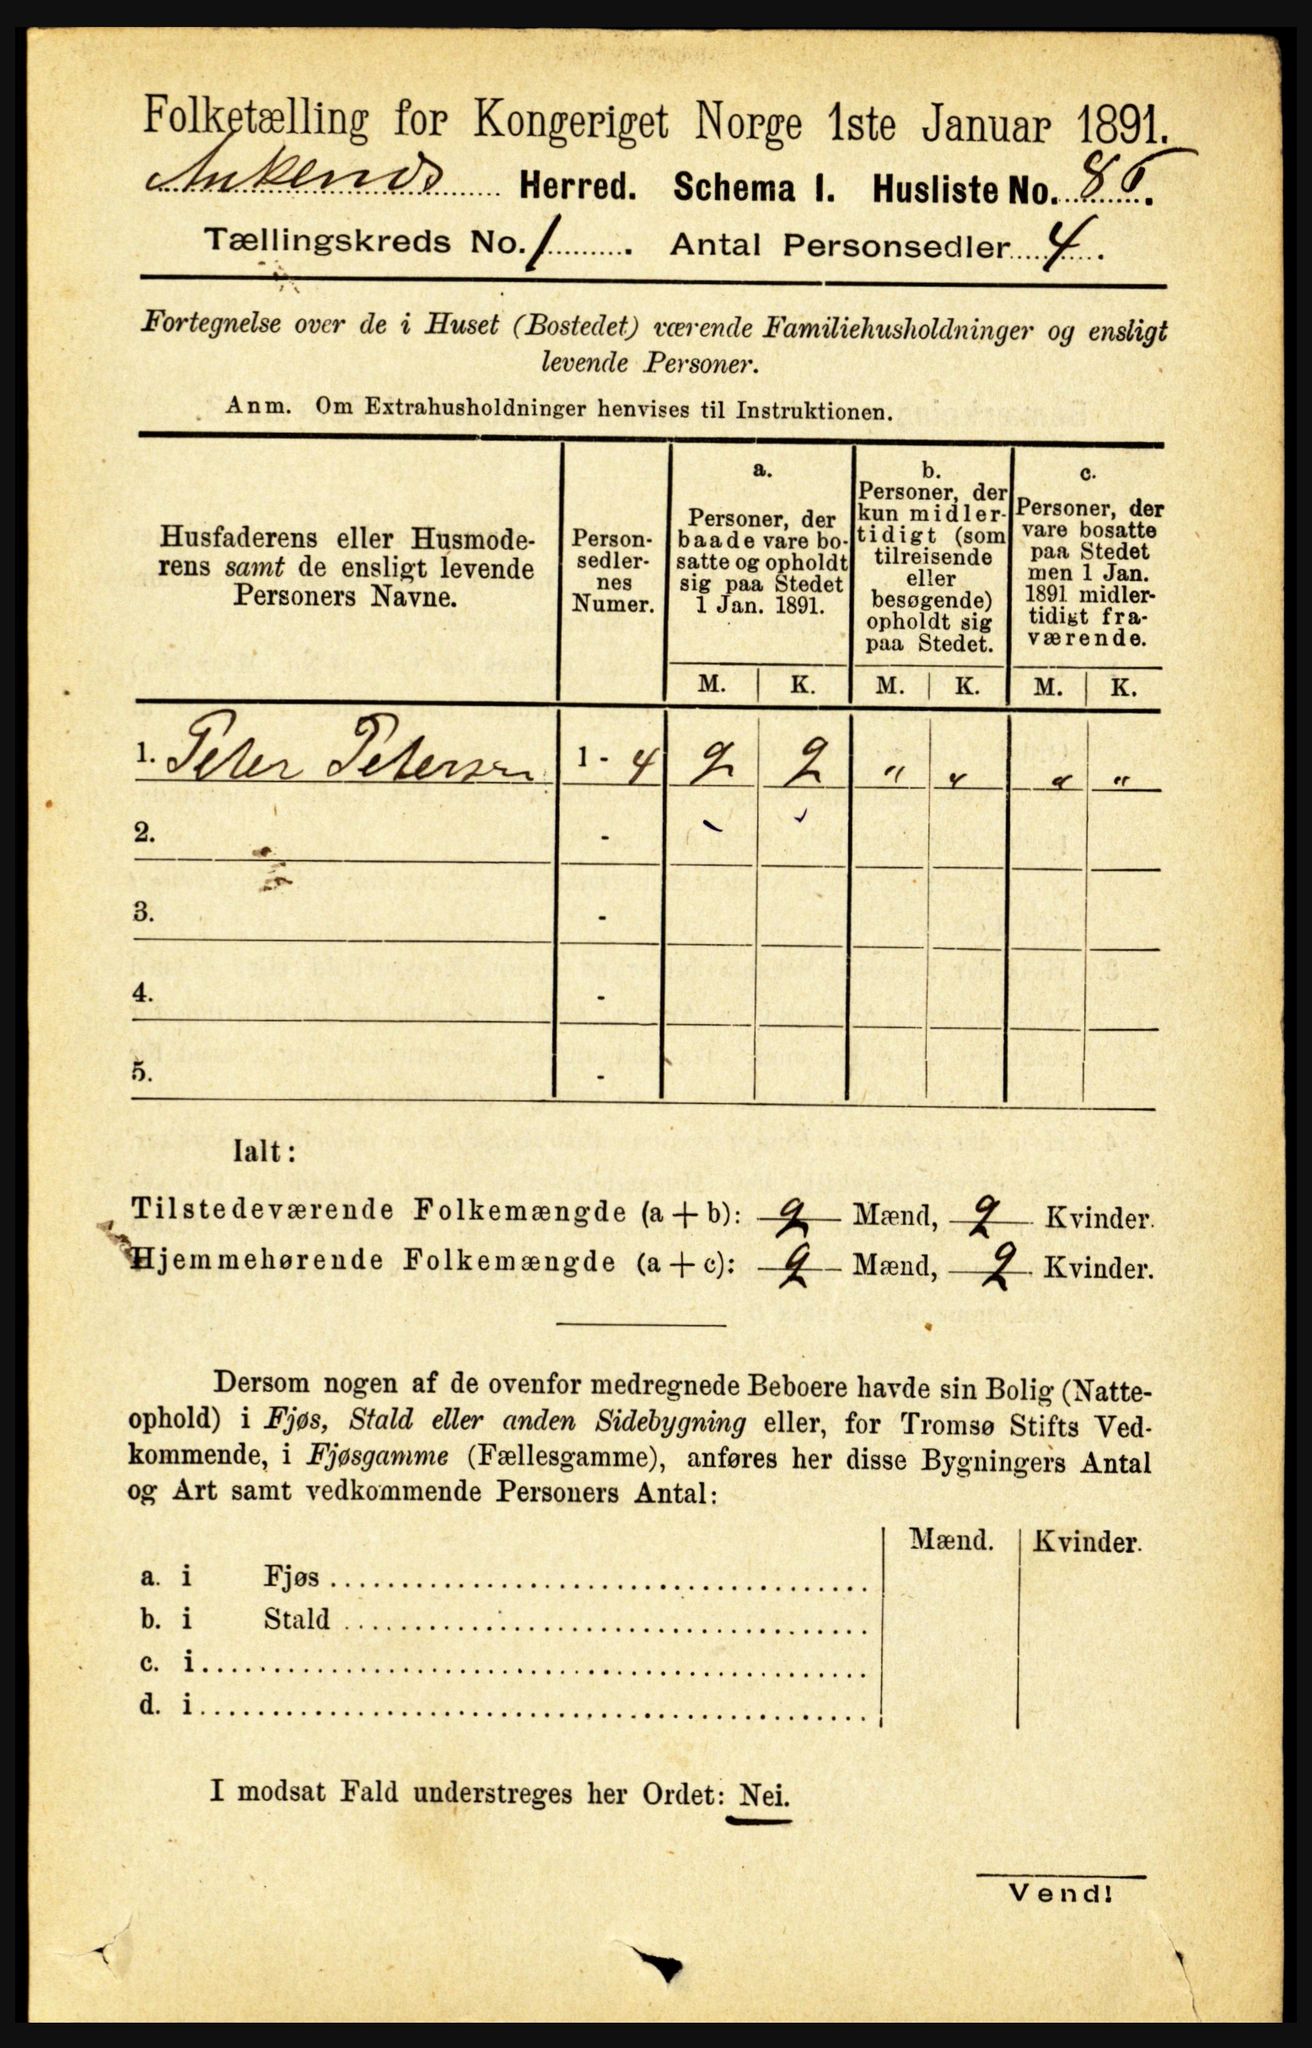 Folketælling for Kongeriget Norge 1ste Januar 1891.
Ankenes Herred. Schema I. Husliste No. 86.
Tællingskreds No. 1. Antal Personsedler 4.
Fortegnelse over de i Huset (Bostedet) værende Familiehusholdninger og ensligt
levende Personer.
Anm. Om Extrahusholdninger henvises til Instruktionen.
Husfaderens eller Husmode-
rens samt de ensligt levende
Personers Navne.
Person-
sedler-
nes
Numer.
a.
Personer, der
baade vare bo-
satte og opholdt
sig paa Stedet
1 Jan. 1891.
b.
Personer, der
kun midler-
tidigt (som
tilreisende
eller
besøgende)
opholdt sig
paa Stedet.
c.
Personer, der
vare bosatte
paa Stedet
men 1 Jan.
1891 midler-
tidigt fra-
værende.
M. K. M. K. M. K.
1. Peter Petersen 1 - 4 2 2 " " " "
2. -
3. -
4. -
5. -
Ialt:
Tilstedeværende Folkemængde (a + b): 2 Mænd, 2 Kvinder.
Hjemmehørende Folkemængde (a + c): 2 Mænd, 2 Kvinder.
Dersom nogen af de ovenfor medregnede Beboere havde sin Bolig (Natte-
ophold) i Fjøs, Stald eller anden Sidebygning eller, for Tromsø Stifts Ved-
kommende, i Fjøsgamme (Fællesgamme), anføres her disse Bygningers Antal
og Art samt vedkommende Personers Antal:
Mænd. Kvinder.
a. i Fjøs
b. i Stald
c. i
d. i
I modsat Fald understreges her Ordet: Nei.
Vend!